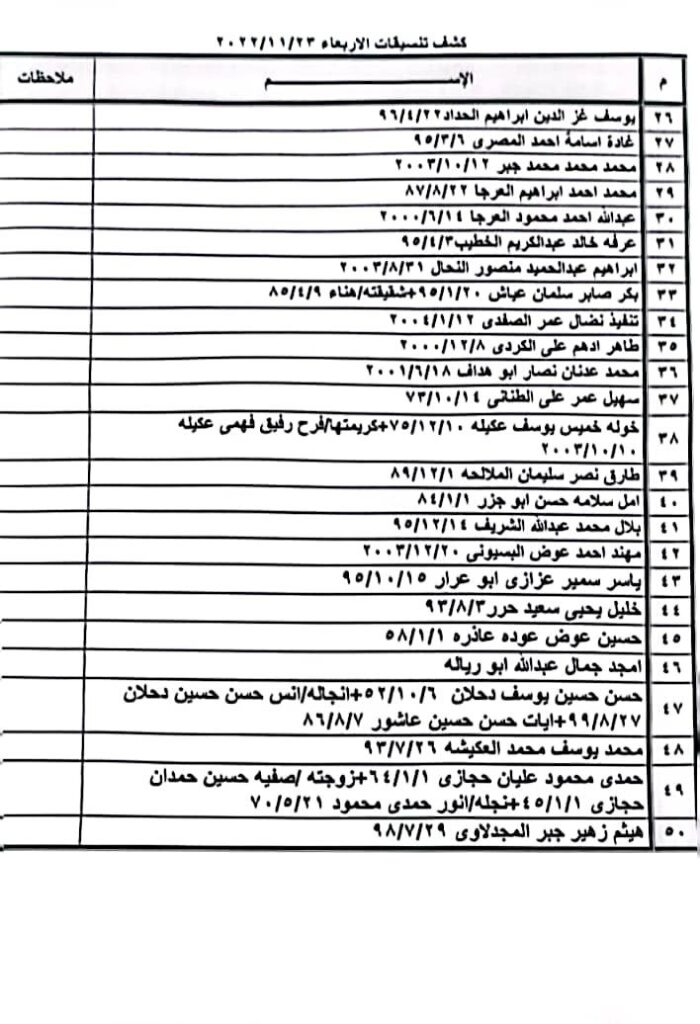 كشف تنسيقات الاربعاء ٢٠٢٢/١١/٢٣
م الإســـــــم ملاحظات
٢٦ يوسف غز الدين ابراهيم الحداد٩٦/٤/٢٢
٢٧ غادة اسامة احمد المصرى ٩٥/٣/٦
٢٨ محمد محمد محمد جبر ٢٠٠٣/١٠/١٢
٢٩ محمد احمد ابراهيم العرجا ٨٧/٨/٢٢
٣٠ عبدالله احمد محمود العرجا ٢٠٠٠/٦/١٤
٣١ عرفه خالد عبدالكريم الخطيب٩٥/٤/٣
٣٢ ابراهيم عبدالحميد منصور النحال ٢٠٠٣/٨/٣١
٣٣ بكر صابر سلمان عياش ٩٥/١/٢٠+شقيقته/هناء ٨٥/٤/٩
٣٤ تنفيذ نضال عمر الصفدى ٢٠٠٤/١/١٢
٣٥ طاهر ادهم على الكردى ٢٠٠٠/١٢/٨
٣٦ محمد عدنان نصار ابو هداف ٢٠٠١/٦/١٨
٣٧ سهيل عمر على الطنانى ٧٣/١٠/١٤
٣٨ خوله خميس يوسف عكيله ٧٥/١٢/١٠+كريمتها/فرح رفيق فهمى عكيله
٢٠٠٣/١٠/١٠
٣٩ طارق نصر سليمان الملالحه ٨٩/١٢/١
٤٠ امل سلامه حسن ابو جزر ٨٤/١/١
٤١ بلال محمد عبدالله الشريف ٩٥/١٢/١٤
٤٢ مهند احمد عوض البسيونى ٢٠٠٣/١٢/٢٠
٤٣ ياسر سمير عزازى ابو عرار ٩٥/١٠/١٥
٤٤ خليل يحيى سعيد حرر٩٣/٨/٣
٤٥ حسين عوض عوده عاذره ٥٨/١/١
٤٦ امجد جمال عبدالله ابو رياله
٤٧ حسن حسين يوسف دحلان ٥٢/١٠/٦+انجاله/انس حسن حسين دحلان
٩٩/٨/٢٧+ايات حسن حسين عاشور ٨٦/٨/٧
٤٨ محمد يوسف محمد العكيشه ٩٣/٧/٢٦
٤٩ حمدى محمود عليان حجازى ٦٤/١/١+زوجته /صفيه حسين حمدان
حجازى ٤٥/١/١+نجله/انور حمدى محمود ٧٠/٥/٢١
٥٠ هيثم زهير جبر المجدلاوى ٩٨/٧/٢٩